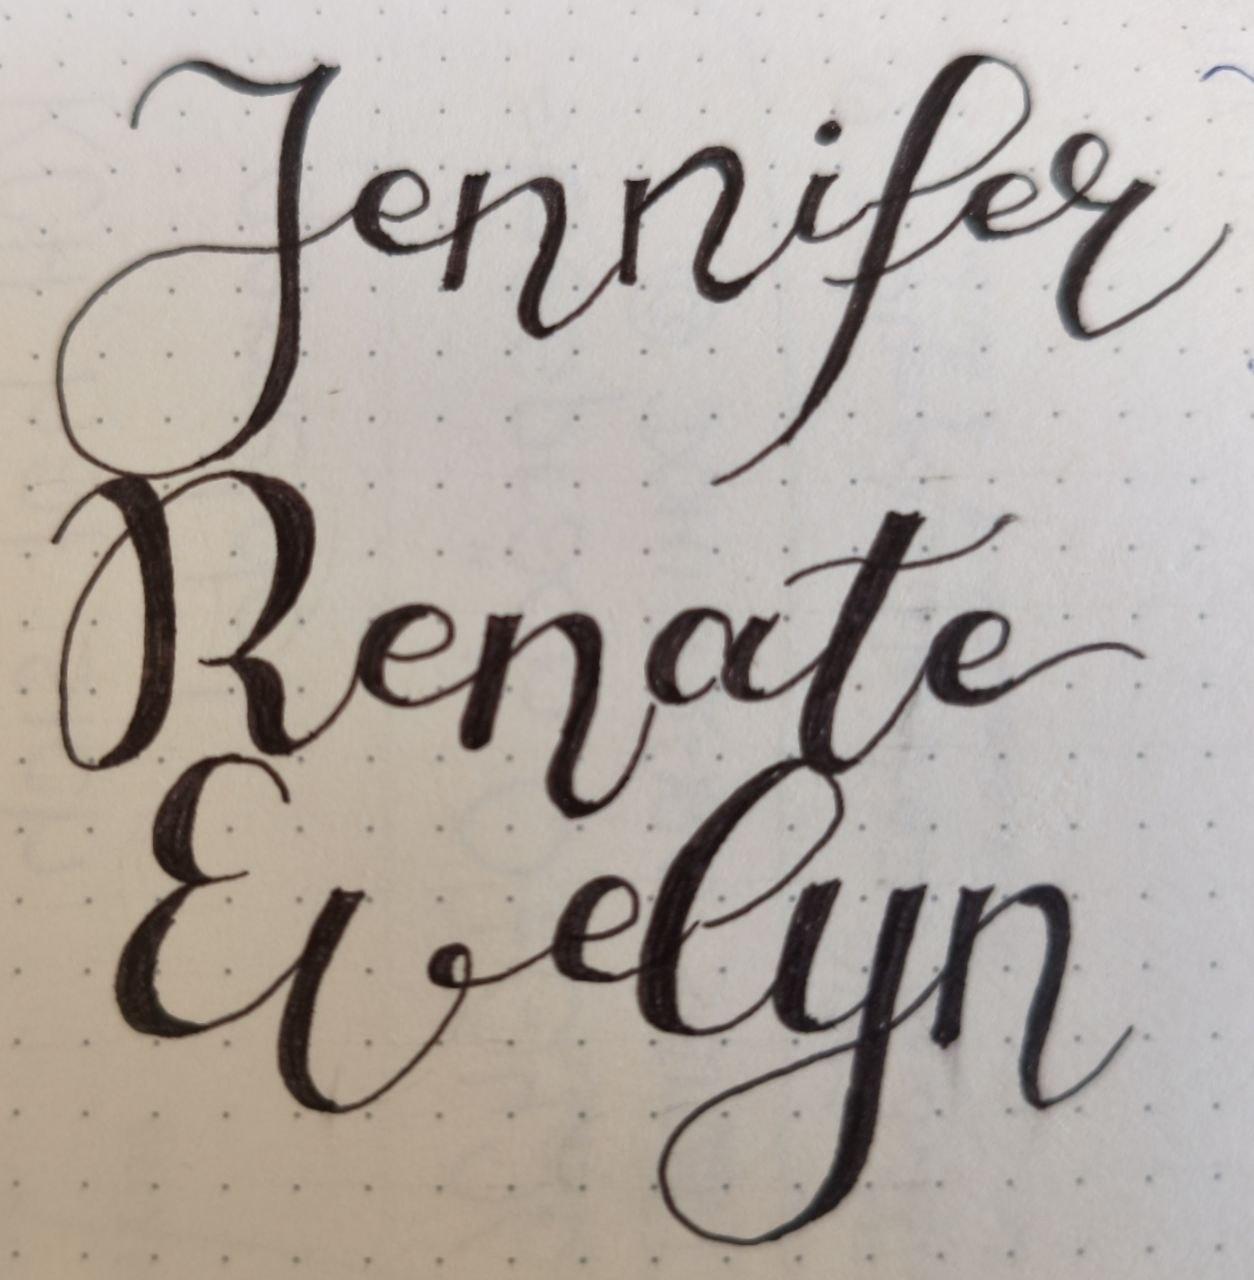 Jennifer
Renate
Evelyn